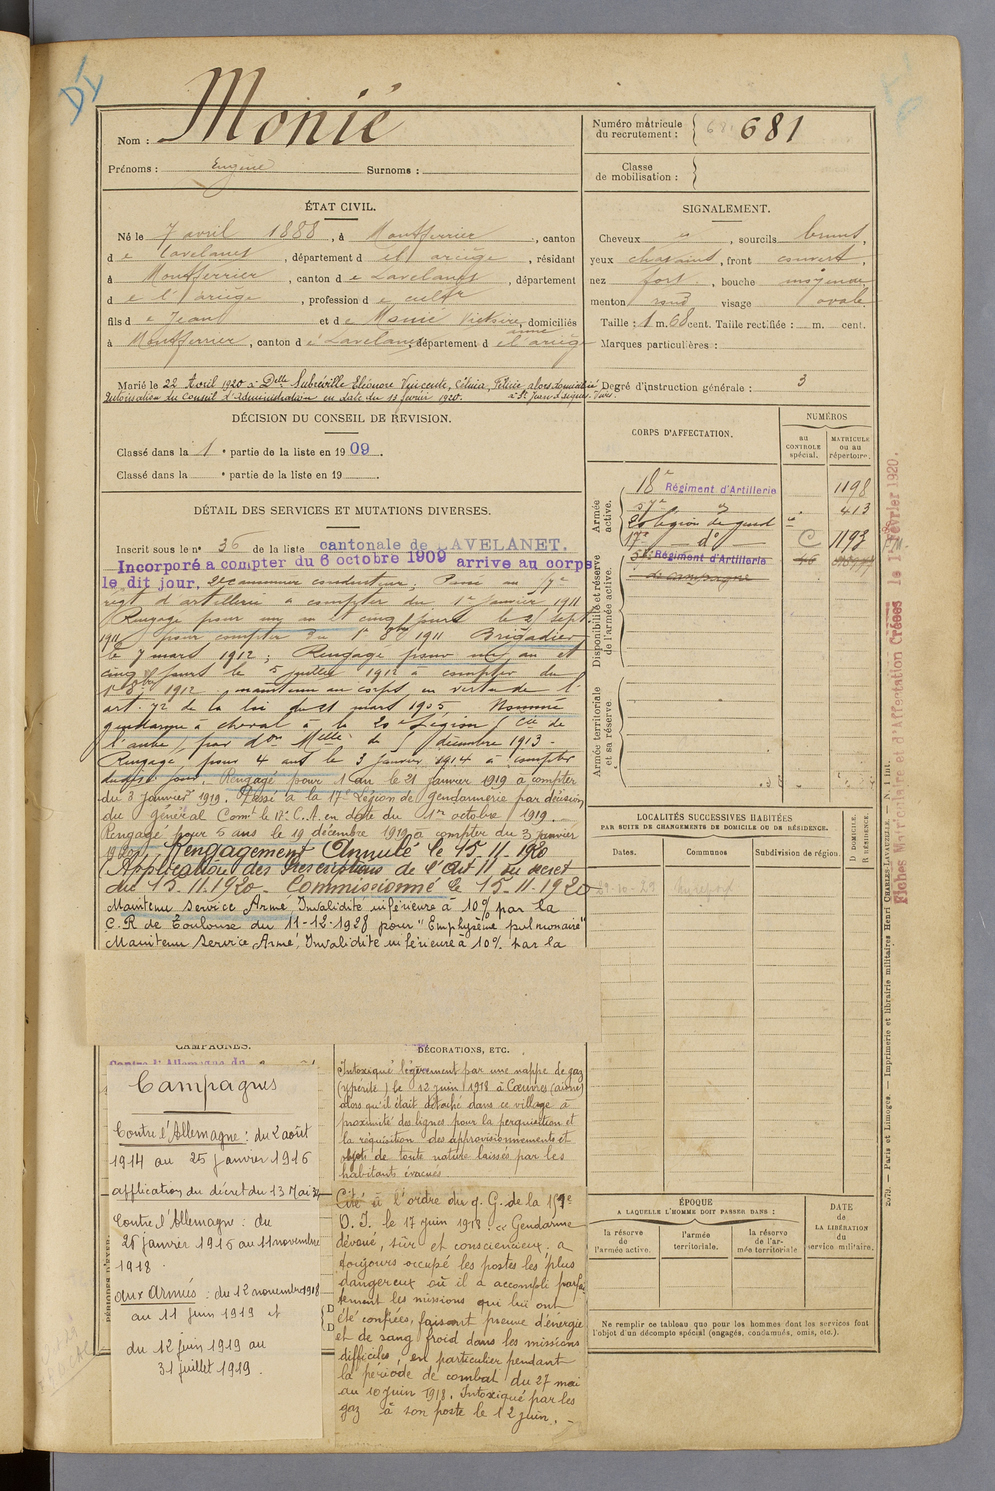 DI
Nom : Monié
Prénoms : Eugène Surnoms :
Numéro matricule
du recrutement : 681
Classe
de mobilisation :
ÉTAT CIVIL.
Né le 7 avril 1888, à Montferrier, canton
de Lavelanet, département de l'ariège, résidant
à Montferrier, canton de Lavelanet, département
de l'ariège, profession de cultr
fils de Jean et de Monié Victoire, domiciliés
à Montferrier, canton de Lavelanet, département de l'ariège
Marié le 22 Avril 1920 à Delle Subréville Eléonore Vincente, Célinia, Félicie, alors domiciliée
Autorisation du Conseil d'Administration en date du 11 février 1920. à St Jean d'aigues-Vives.
SIGNALEMENT.
Cheveux et, sourcils bruns,
yeux chatains, front couvert,
nez fort, bouche moyenne,
menton rond visage ovale
Taille : 1 m. 68 cent. Taille rectifiée : m. cent.
Marques particulières :
Degré d'instruction générale : 3
DÉCISION DU CONSEIL DE REVISION.
Classé dans la 1e partie de la liste en 1909.
Classé dans la e partie de la liste en 19
CORPS D'AFFECTATION.
NUMÉROS
au
CONTROLE
spécial.
MATRICULE
ou au
répertoire.
Armée
active.
18e Régiment d'Artillerie 1198
57e d° 413
20 légion de gend
17e — d° C 1193
Disponibilité et réserve
de l'armée active.
Régiment d'Artillerie
de campagne
Armée territoriale
et sa réserve.
DÉTAIL DES SERVICES ET MUTATIONS DIVERSES.
Inscrit sous le n° 36 de la liste cantonale de LAVELANET.
Incorporé a compter du 6 octobre 1909 arrive au corps
le dit jour, 2e canonnier conducteur, Passé au 57e
régt d'artillerie à compter du 1er Janvier 1911
Rengagé pour un an et cinq jours le 21 Sept.
1911 pour compter du 1er 8bre 1911 Brigadier
le 7 mars 1912; Rengagé pour un an et
cinq jours le 5 juillet 1912 à compter du
1er 8bre 1912, maintenu au corps, en vertu de l'
art. 72 de la loi du 21 mars 1905. Nommé
gendarme à cheval à la 20e Légion (Cie de
l'aube), par don Melle du décembre 1913 -
Rengagé, pour 4 ans le 3 janvier 1914 à compter
dudit jour. Rengagé pour 1 an le 21 Janvier 1919 à compter
du 3 Janvier 1919. Passé à la 17e Légion de Gendarmerie par décision
du Général Comt le 17e C.A. en date du 1er octobre 1919.
Rengagé pour 5 ans le 19 décembre 1919 à compter du 3 Janvier
1920. Rengagement Annulé le 15.11.1920
Application des Prescriptions de l'Art 11 du décret
du 15.11.1920. Commissionné le 15-11-1920
Maintenu Service Armé Invalidité inférieure à 10% par la
C.R de Toulouse du 11-12-1928 pour "Emphysème pulmonaire"
Maintenu Service Armé, Invalidité inférieure à 10% par la
LOCALITÉS SUCCESSIVES HABITÉES
PAR SUITE DE CHANGEMENTS DE DOMICILE OU DE RÉSIDENCE.
Dates.
Communes
Subdivision de région.
D DOMICILE.
R RÉSIDENCE.
CAMPAGNES.
Contre l'Allemagne du
Campagnes
Contre l'Allemagne : du 2 août
1914 au 25 janvier 1916
application du décret du 13 Mai 34
Contre l'Allemagne : du
26 janvier 1916 au 11 novembre
1918.
aux Armées : du 12 novembre 1918
au 11 juin 1919 et
du 12 juin 1919 au
31 juillet 1919.
DÉCORATIONS, ETC.
Intoxiqué légèrement par une nappe de gaz
(ypérite) le 12 juin 1918 à Cœuvres (aisne)
alors qu'il était détaché dans ce village à
proximité des lignes pour la perquisition et
la réquisition des approvisionnements et
objets de toute nature laissés par les
habitants évacués
Cité à l'ordre du q. G. de la 159e
D. I. le 17 juin 1918 : « Gendarme
dévoué, sûr et consciencieux. a
toujours occupé les postes les plus
dangereux où il a accompli parfai
tement les missions qui lui ont
été confiées, faisant preuve d'énergie
et de sang froid dans les missions
difficiles, en particulier pendant
la période de combat du 27 mai
au 10 juin 1918. Intoxiqué par les
gaz à son poste le 12 juin. -
ÉPOQUE
A LAQUELLE L'HOMME DOIT PASSER DANS :
la réserve
de
l'armée active.
l'armée
territoriale.
la réserve
de l'ar-
mée territoriale
DATE
de
LA LIBÉRATION
du
service militaire.
Ne remplir ce tableau que pour les hommes dont les services font
l'objet d'un décompte spécial (engagés, condamnés, omis, etc.).
Fiches Matriculaire et d'Affectation Créées le 1er Février 1920.
Paris et Limoges. — Imprimerie et librairie militaires Henri CHARLES-LAVAUZELLE. — N. 1 Int.